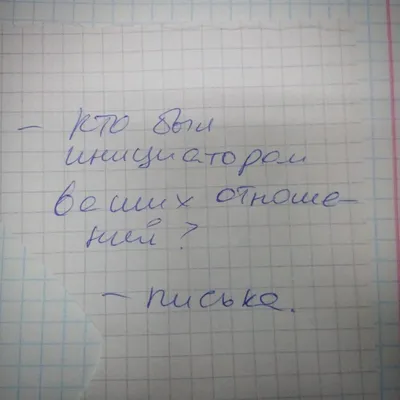 - Кто был
инициатором
ваших отноше-
ний?
- писька.